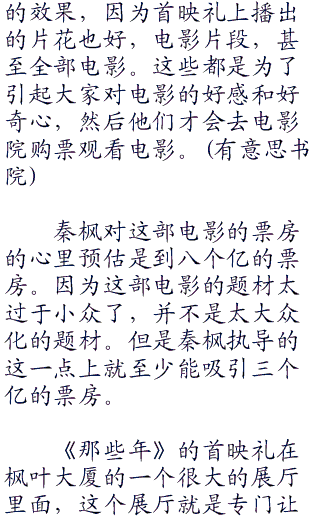 的效果，因为首映礼上播出
的片花也好，电影片段，甚
至全部电影。这些都是为了
引起大家对电影的好感和好
奇心，然后他们才会去电影
院购票观看电影。(有意思书
院)
秦枫对这部电影的票房
的心里预估是到八个亿的票
房。因为这部电影的题材太
过于小众了，并不是太大众
化的题材。但是秦枫执导的
这一点上就至少能吸引三个
亿的票房。
《那些年》的首映礼在
枫叶大厦的一个很大的展厅
里面，这个展厅就是专门让